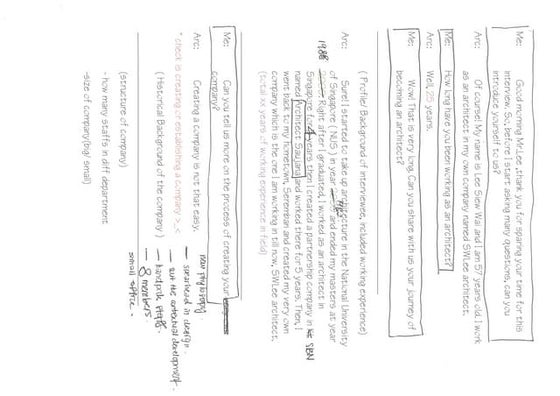 Me: Good morning Mr Lee, thank you for sparing your time for this
interview. So, before I start asking many questions, can you
introduce yourself to us?
Arc: Of course! My name is Lee Siew Wai and I am 57 years old. I work
as an architect in my own company named SWLee architect.
Me: How long have you been working as an architect?
Arc: Well, 25 years.
Me: Wow! That is very long. Can you share with us your journey of
becoming an architect?
( Profile/ Background of interviewee, included working experience)
Arc: Sure! I started to take up architecture in the National University
of Singapore ( NUS ) in year and ended my masters at year
1988 Right after I graduated, I worked as an architect in
Singapore for 4 years then I created a partnership company in SBN
named Architect Saujana and worked there for 5 years. Then, I
went back to my hometown, Seremban and created my very own
company which is the one I am working in till now, SWLee architect.
(total xx years of working experience in field)
Me: Can you tell us more on the process of creating your
company?
Arc: Creating a company is not that easy.
* check is creating or establishing a company >.<
( Historical Background of the company )
(structure of company)
-how many staffs in diff department
-size of company(big/ small)
- in design.
- but the external development.
- staffs.
- 8 members.
small office.